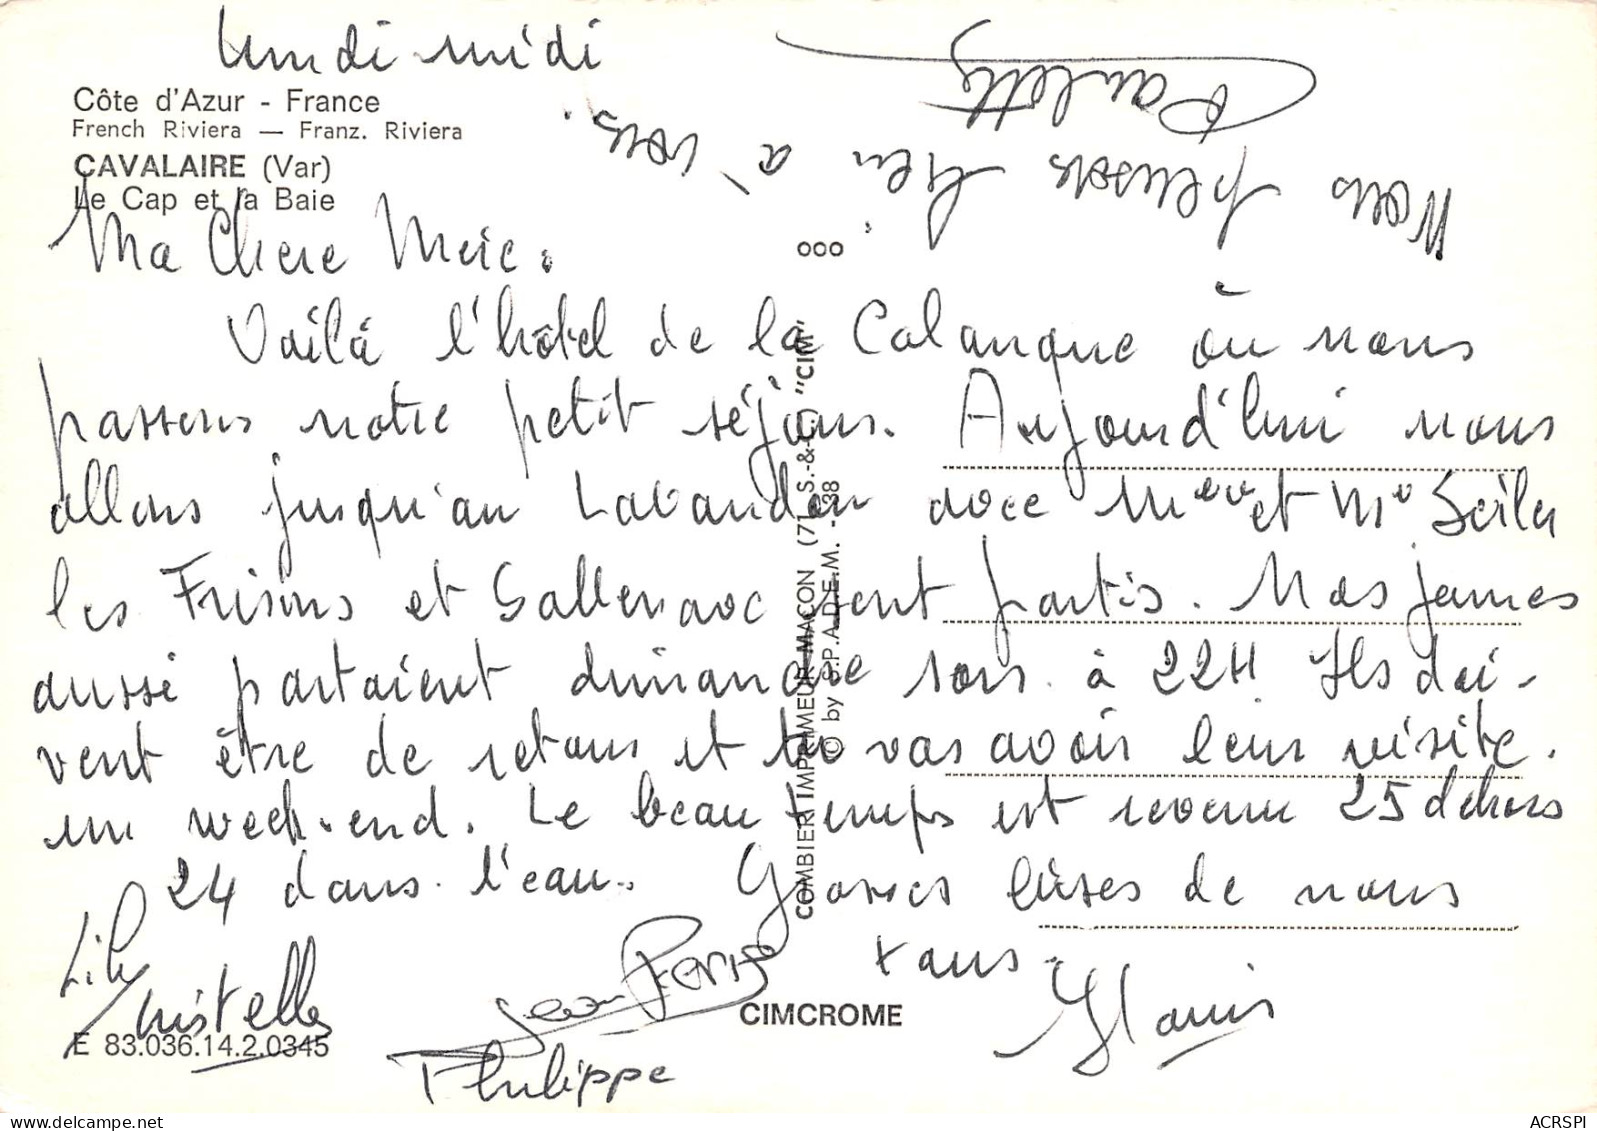 lundi midi
Côte d'Azur - France
French Riviera — Franz. Riviera
CAVALAIRE (Var)
Le Cap et la Baie
Ma Chere Meie.
Voilà l'hôtel de la Calanque où nous
passons notre petit séjour. Aujourd'hui nous
allons jusqu'au Lavandou avec et
les Frisons et sont partis. Nos jeunes
aussi partaient dimanche soir à 22H Ils doi-
vent être de retour et tu vas avoir leur visite.
un week-end. Le beau temps est revenu 25 dehors
24 dans l'eau. Grosses bises de nous
tous.
Lily
Christelle
Jean Pierre
Philippe
Nous pensons bien à vous.
Paulette
ooo
COMBIER IMPRIMEUR MACON (71 S.-&-L.) "CIM"
© by S.P.A.D.E.M. - 38
CIMCROME
E 83.036.14.2.0345
ACRSPI